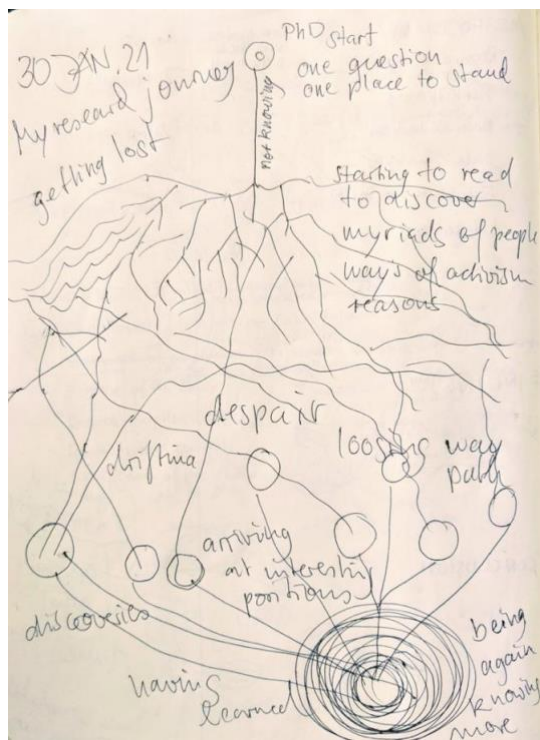 30 JAN. 21
My research journey
getting lost
PhD start
one question
one place to stand
not knowing
starting to read
to discover
myriads of people
ways of activism
reasons
despair
drifting
loosing way
path
arriving
at interesting
positions
discoveries
having
learned
being
again
knowing
more